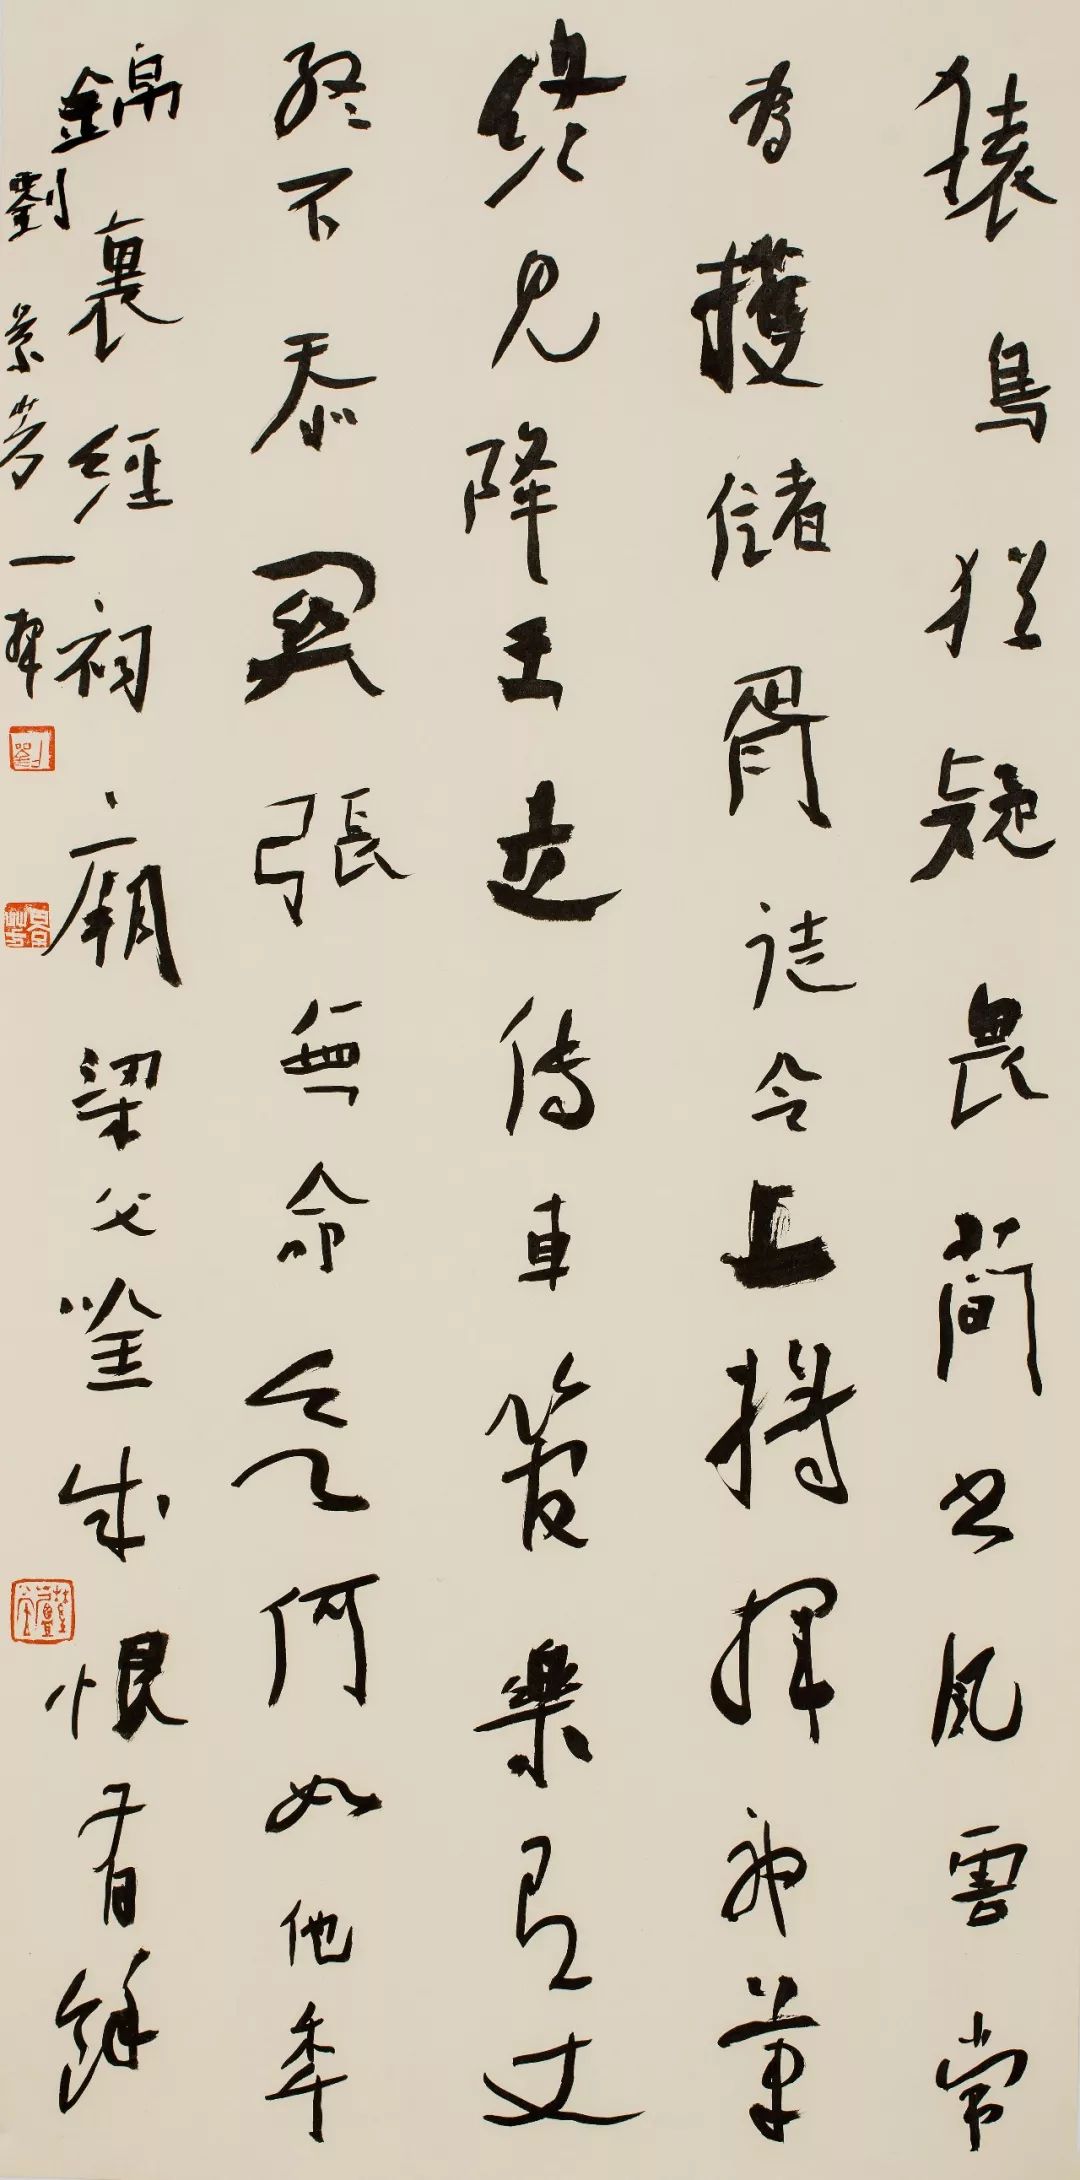 猿鳥猶疑畏簡書風雲常
為護儲胥徒令上將揮神筆
終見降王走傳車管樂有才
終不忝關張無命欲何如他年
錦裏經祠廟梁父吟成恨有餘
劉景芳一
劉